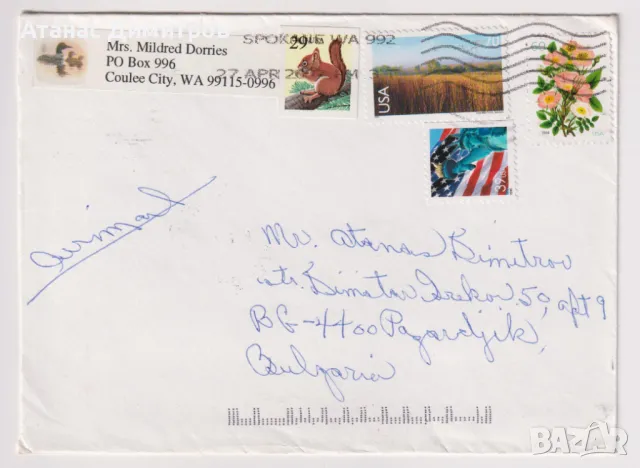 Атанас Димитров
Mrs. Mildred Dorries
PO Box 996
Coulee City, WA 99115-0996
29
USA
SPOKANE WA 992
27 APR 20
USA
70
60
37
airmail
Mr. Atanas Dimitrov
str. Dimatar Grekov 50, apt 9
BG-4400 Pazardjik,
Bulgaria
BAZAR.BG